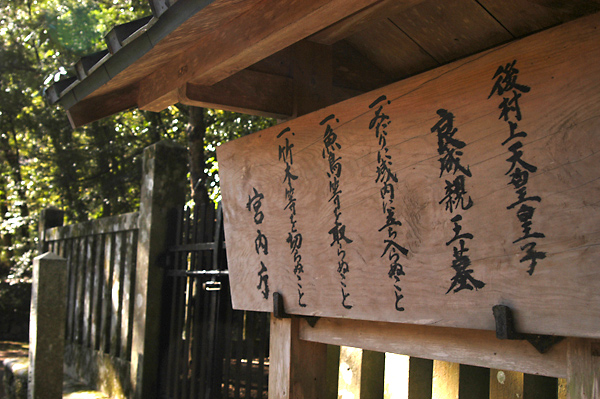 後村上天皇皇子
良成親王墓
一、みだりに域内に立ち入らぬこと
一、魚鳥等を取らぬこと
一、竹木等を切らぬこと
宮内庁